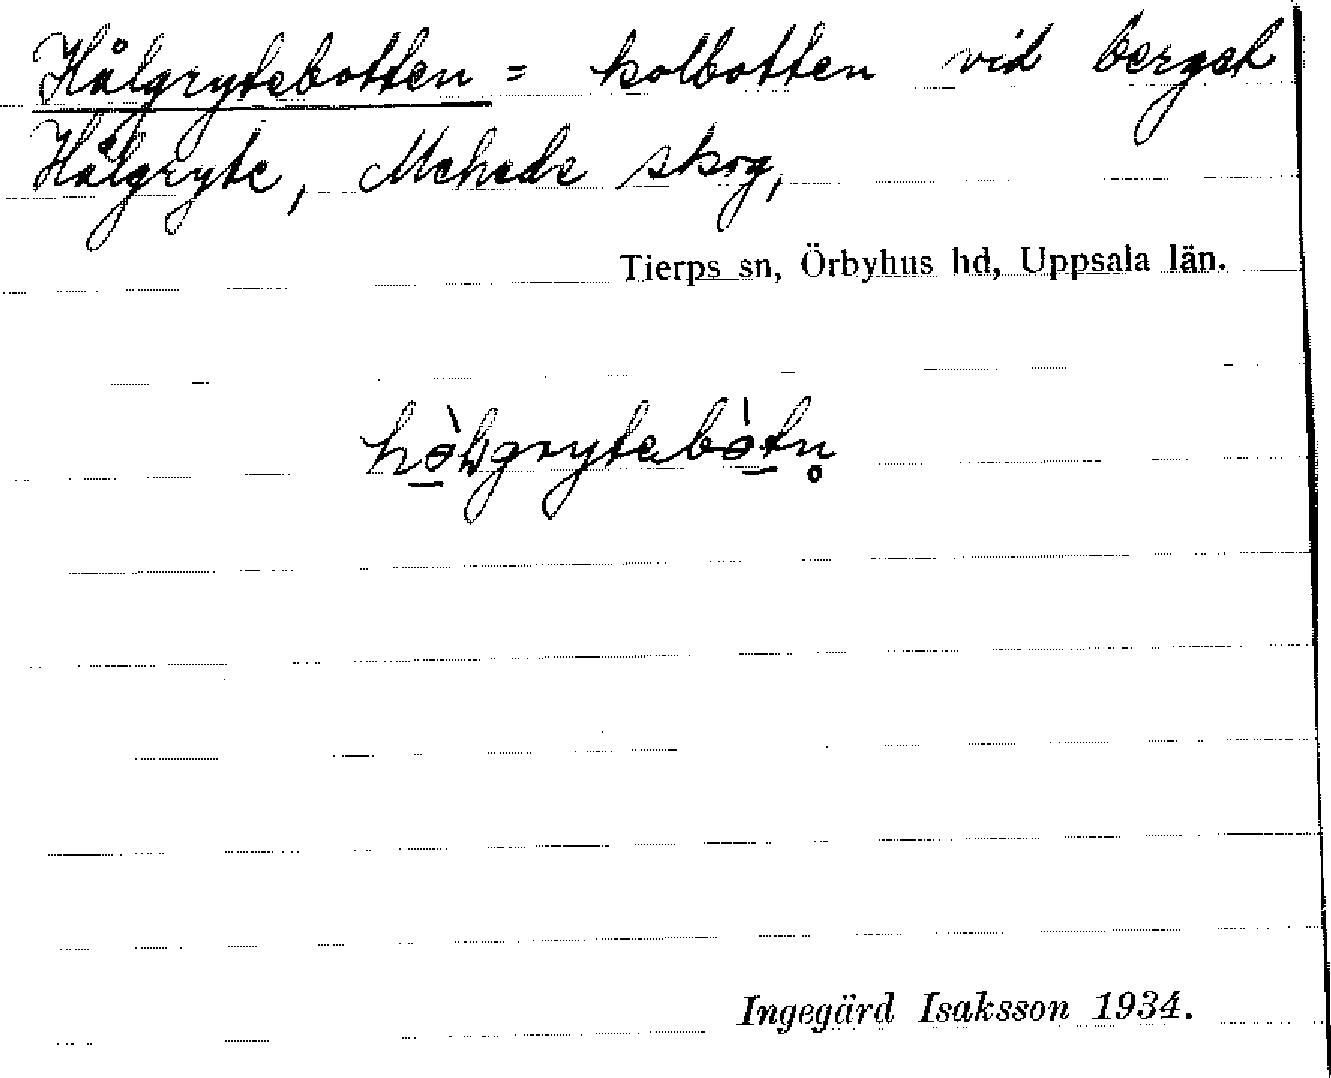 Hålgrytebotten = kolbotten vid berget
Hålgryte, Mehede skog,
Tierps sn, Örbyhus hd, Uppsala län.
Ingegärd Isaksson 1934.